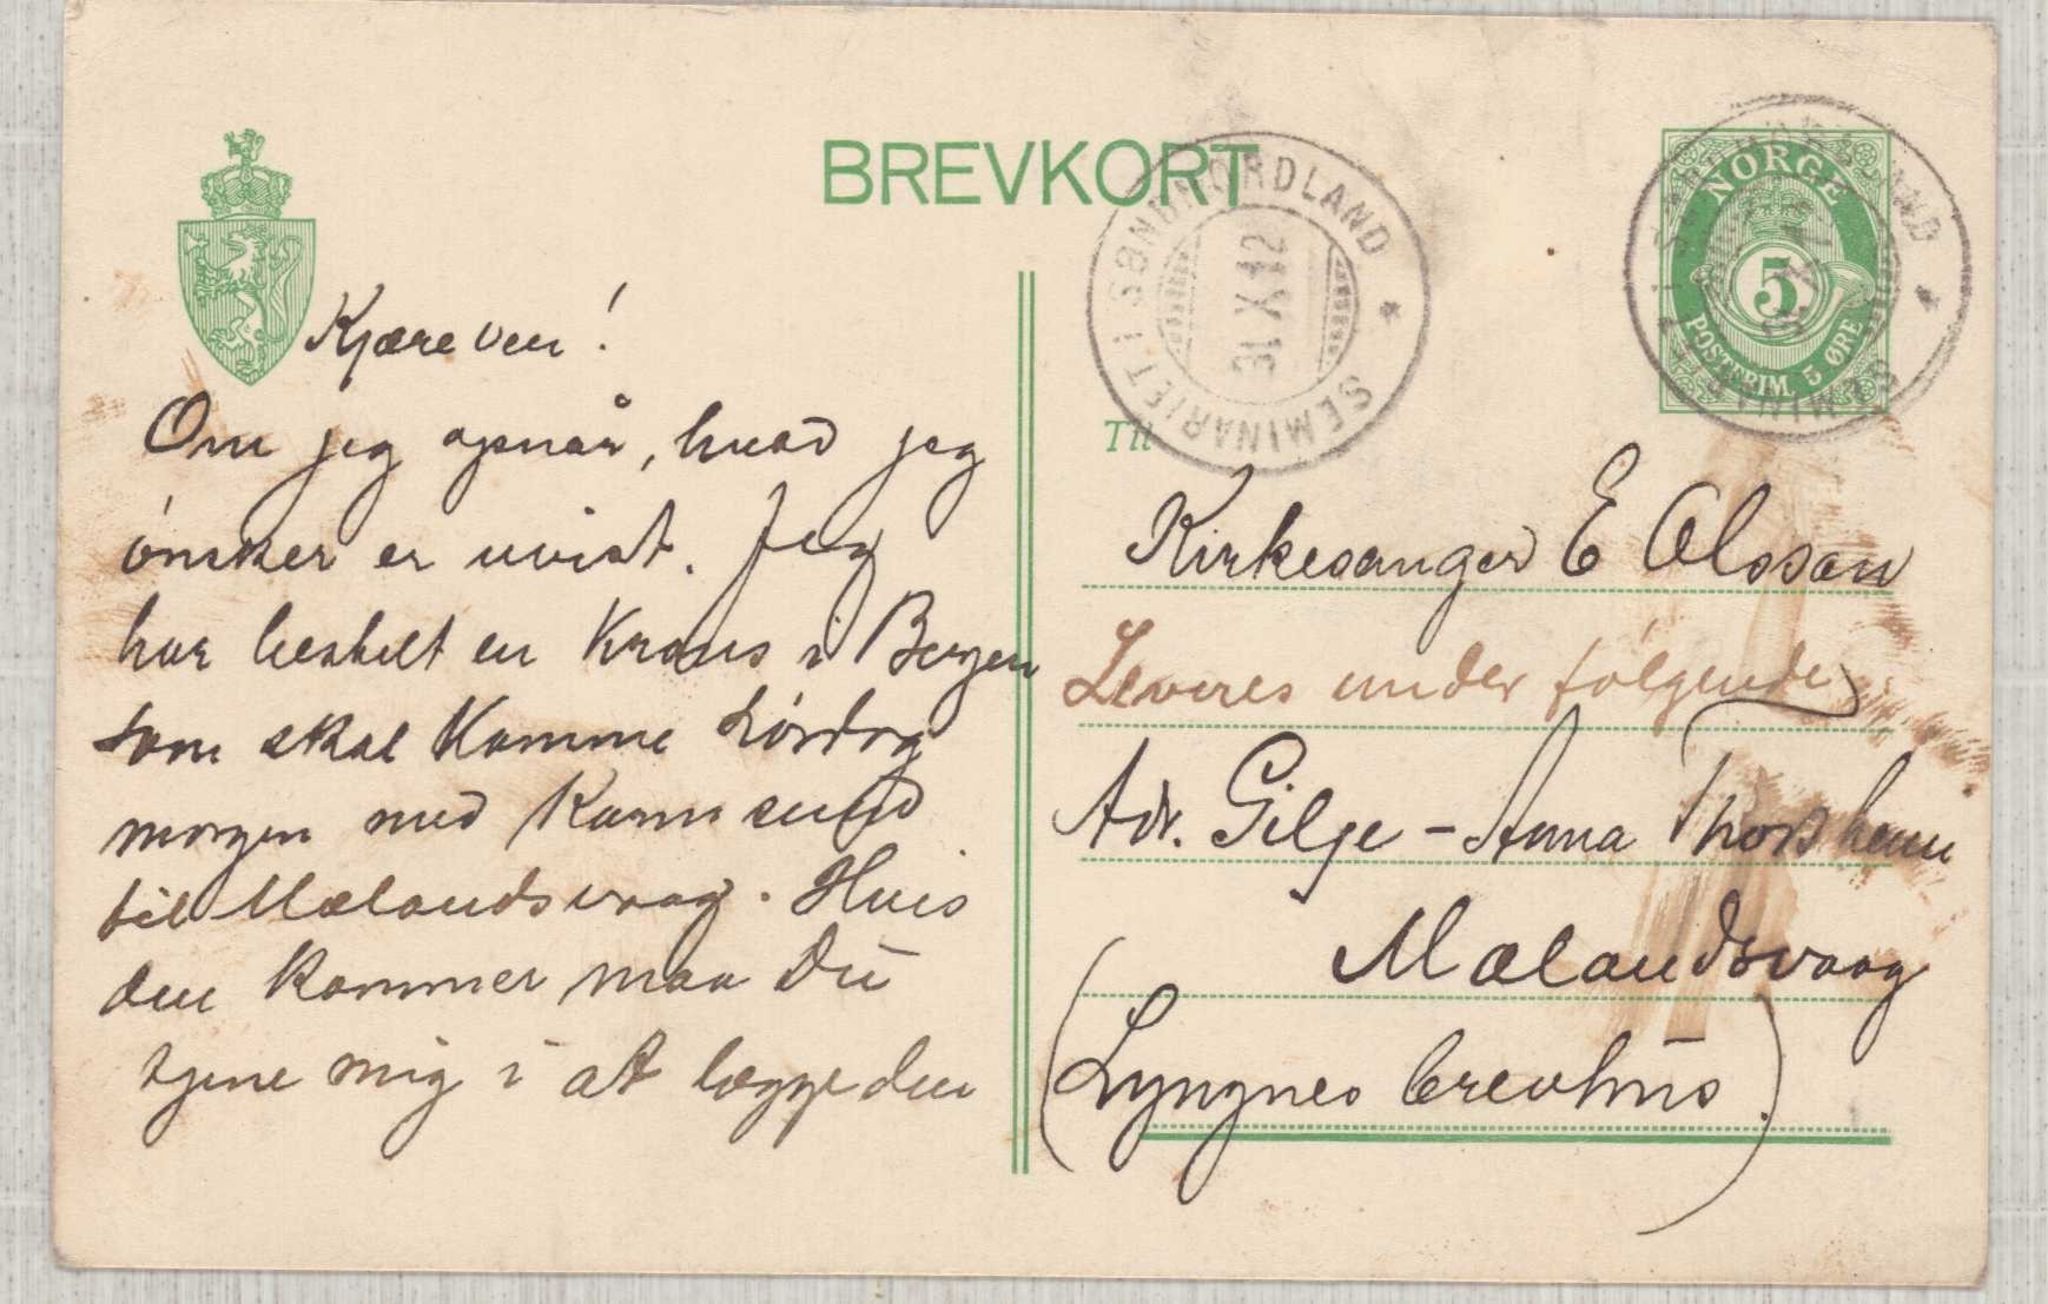 BREVKORT
NORGE
5
POSTFRIM. 5 ØRE
SEMINARIET I SØNDNORDLAND
31 X 12
Kjære ven!
Om jeg opnår, hvad jeg
ønsker er uvist. Jeg
har bestilt en Krans i Bergen
som skal Komme Lørdag
morgen med Karmsund
til Mælandsvaag. Hvis
den Kommer maa Du
tjene mig i at lægge den
Til
Kirkesanger E Olssen
Leveres under følgende
Adr. Gilje - Anna
Mælandsvaag
(Lyngnes brevhus)